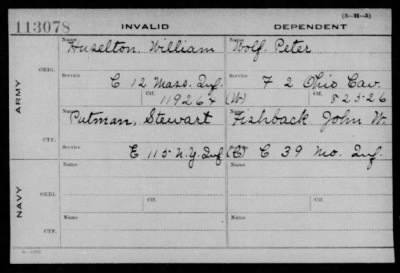 (3-H-3)
113078 INVALID DEPENDENT
Name Name
Huselton, William Wolf, Peter
ORIG. Service Service
C 12 Mass. Inf. F 2 Ohio Cav.
Ctf. Ctf.
119264 (W) 82526
ARMY
Name Name
Putman, Stewart Fishback John W.
CTF. Service Service
E 115 N.Y. Inf (C) C 39 Mo. Inf.
Name Name
ORIG. Service Ctf. Service Ctf.
NAVY
Name Name
CTF. Service Service